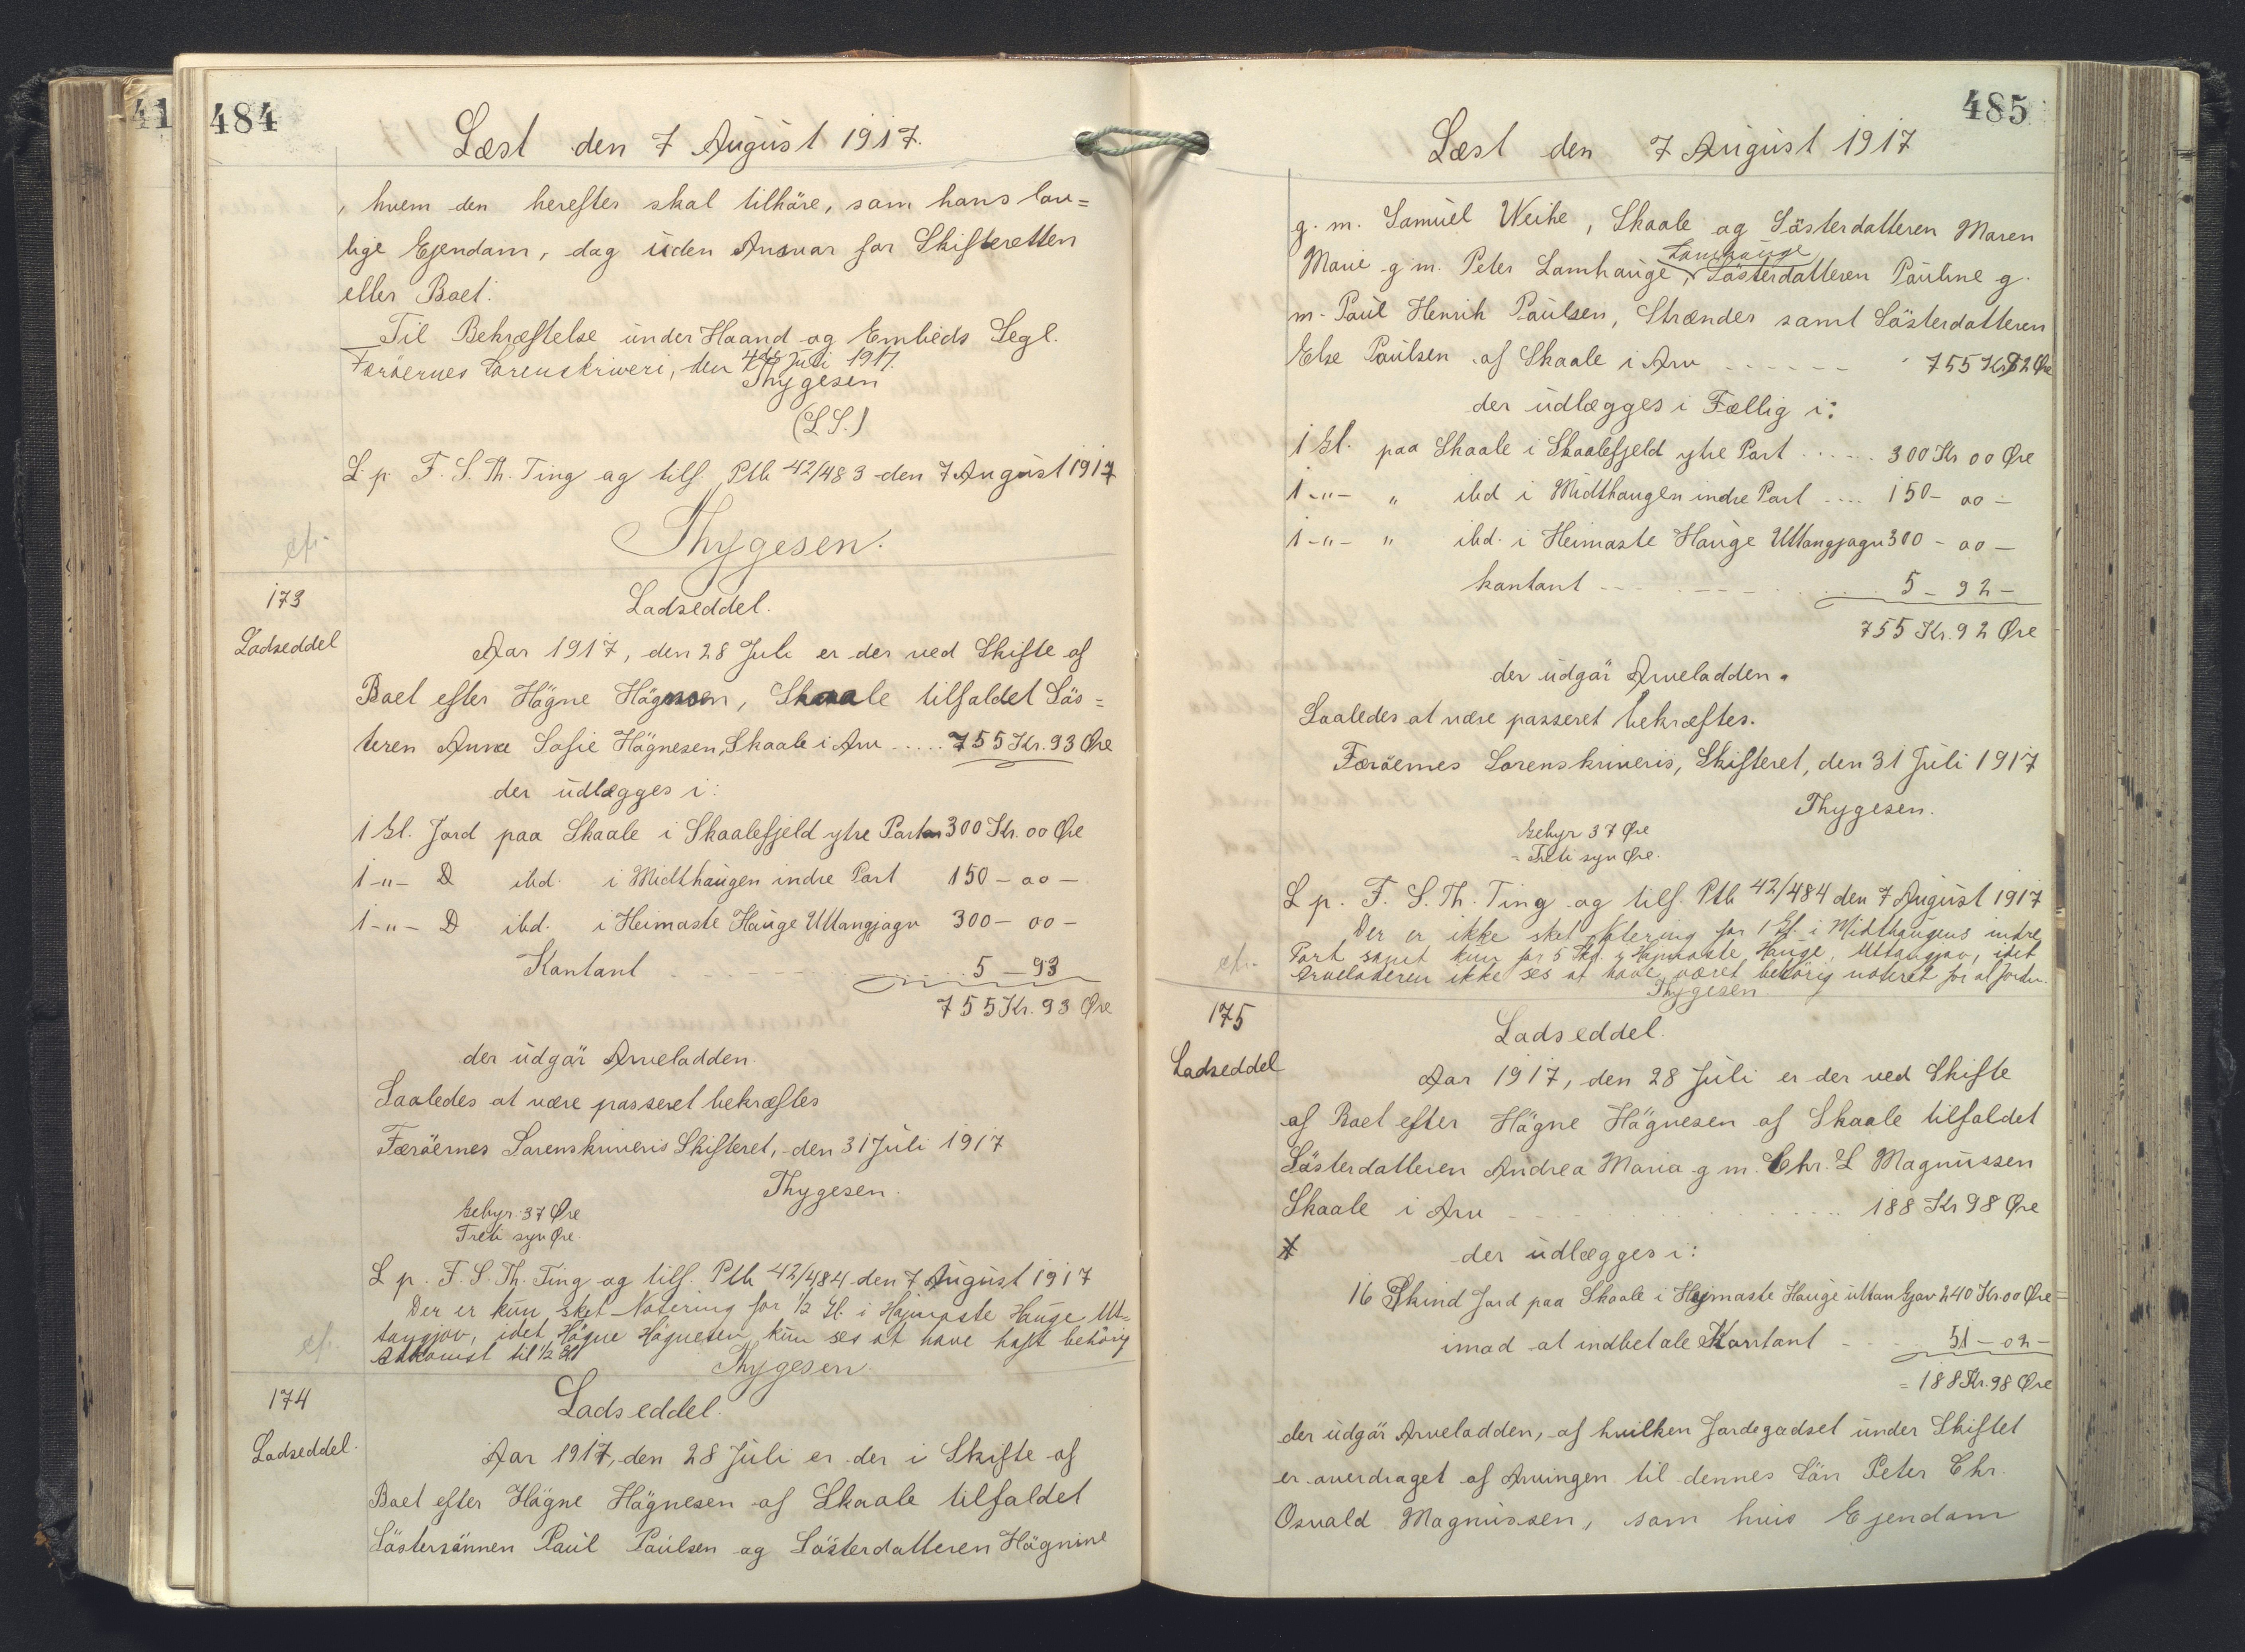 41
484
Læst den 7 August 1917.
, hvem den herefter skal tilhöre, som hans lov=
lige Ejendom, dog uden Ansvar for Skifteretten
eller Boet.
Til Bekræftelse under Haand og Embeds Segl.
Færöernes Sorenskriveri, den 4de Juli 1917.
Thygesen
(L.S.)
L. p. F. S. Th. Ting og tilf. Ptb 42/483 den 7 August 1917
Thygesen.
cf.
173
Lodseddel
Lodseddel.
Aar 1917, den 28 Juli er der ved Skifte af
Boet efter Högne Högnesen, Skaale tilfaldet Sös=
teren Anna Sofie Högnesen, Skaale i Arv ..... 755 Kr. 93 Øre
der udlægges i:
1 Gl. Jord paa Skaale i Skaalefjeld ytre Part 300 Kr. 00 Øre
1 -"- D ibd. i Midthaugen indre Part 150 - 00 -
1 -"- D ibd. i Heimaste Hauge Uttangjogv 300 - 00 -
Kontant ..... 5 - 93
755 Kr. 93 Øre
der udgör Arvelodden.
Saaledes at være passeret bekræftes
Færöernes Sorenskriveris Skifteret, den 31 Juli 1917
Thygesen.
Gebyr 37 Øre
Treti syv Øre.
L p. F. S. Th. Ting og tilf. Ptb 42/484 den 7 August 1917
Der er kun sket Notering for 1/2 Gl. i Hajmaste Hauge Ut=
tangjov, idet Högne Högnesen kun ses at have haft behörig
Adkomst til 1/2 Gl
Thygesen.
cf.
174
Lodseddel.
Lodseddel.
Aar 1917, den 28 Juli er der i Skifte af
Boet efter Högne Högnesen af Skaale tilfaldet
Söstersönnen Paul Paulsen og Sösterdatteren Högnine
485
Læst den 7 August 1917
g. m. Samuel Weihe, Skaale og Sösterdatteren Maren
Lamhauge
Marie g. m. Peter Lamhauge, Sösterdatteren Pauline g.
m. Paul Henrik Paulsen, Strænder samt Sösterdatteren
Else Paulsen af Skaale i Arv ...... 755 Kr 92 Øre
der udlægges i Fællig i:
1 Gl. paa Skaale i Skaalefjeld ytre Part ..... 300 Kr 00 Øre
1 -"- " ibd i Midthaugen indre Part .... 150 - 00 -
1 -"- " ibd. i Heimaste Hauge Uttangjogv 300 - 00 -
kontant ..... 5 - 92 -
755 Kr. 92 Øre
der udgör Arvelodden.
Saaledes at være passeret bekræftes.
Færöernes Sorenskriveris, Skifteret, den 31 Juli 1917
Thygesen.
Gebyr 37 Øre
= Treti syv Øre.
L p. F. S. Th. Ting og tilf. Ptb 42/484 den 7 August 1917
Der er ikke sket Notering for 1 Gl. i Midthaugens indre
Part samt kun for 5 Sk. i Hajmaste Hauge, Uttangjov, idet
Arveladeren ikke ses at have været behörig noteret for al Jorden.
Thygesen
cf.
175
Lodseddel
Lodseddel.
Aar 1917, den 28 Juli er der ved Skifte
af Boet efter Högne Högnesen af Skaale tilfaldet
Sösterdatteren Andrea Maria g. m. Chr. L Magnussen
Skaale i Arv ..... 188 Kr 98 Øre
der udlægges i:
16 Skind Jord paa Skaale i Hejmaste Hauge uttan Gjov 240 Kr 00 Øre
imod at indbetale Kontant ..... 51 - 02 -
= 188 Kr. 98 Øre
der udgör Arvelodden, af hvilken Jordegodset under Skiftet
er overdraget af Arvingen til dennes Sön Peter Chr.
Osvald Magnussen, som hvis Ejendom